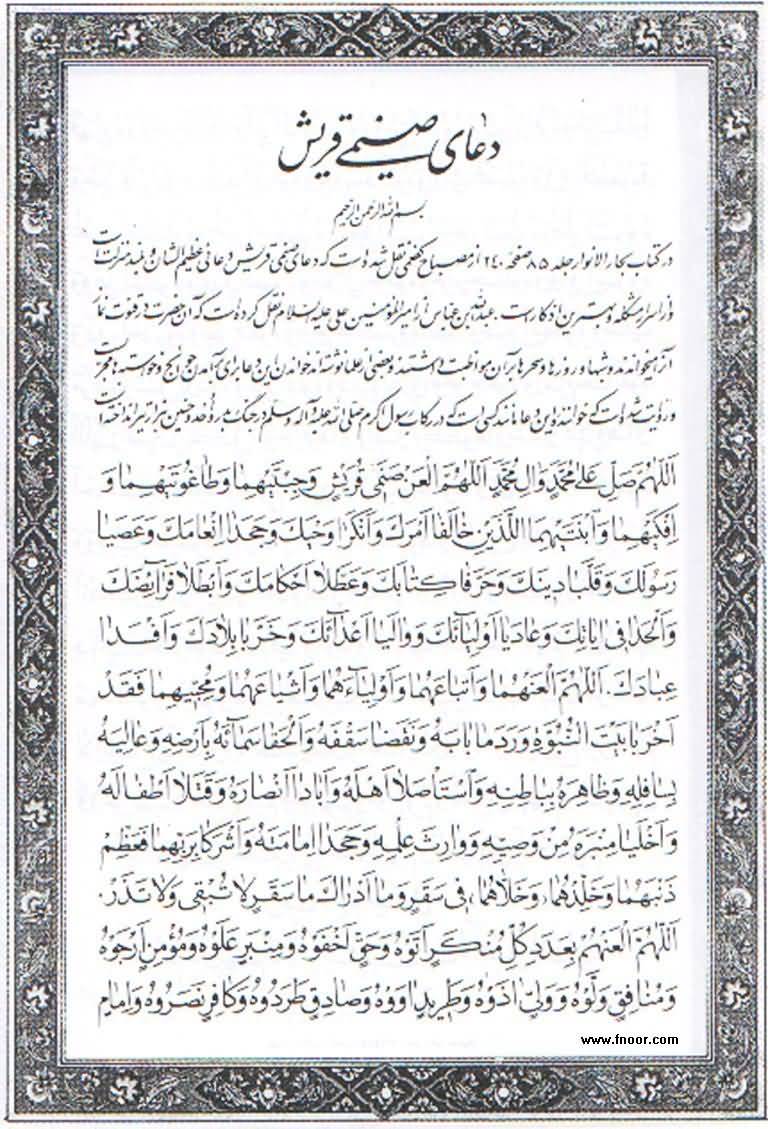 دعای صنمی قریش
بسم الله الرحمن الرحیم
در کتاب بحار الانوار جلد ۸۵ صفحه ۲۴۰ از مصباح کفعمی نقل شده است که دعای صنمی قریش دعائی عظیم الشان و بلند منزلت است
و از اسرار مکنونه و بهترین اذکار است. عبدالله بن عباس از امیرالمؤمنین علی علیه السلام نقل کرده است که آن حضرت در قنوت نماز
آنرا میخواندند و شبها و روزها و سحرها بر آن مواظبت داشتند و بعضی از علما نوشته‌اند خواندن این دعا برای برآمدن حوائج و خواسته‌ها مجرب است
و روایت شده است که خواننده این دعا مانند کسی است که در رکاب رسول اکرم صلی الله علیه و آله و سلم در جنگ بدر و أحد و حنین هزار تیر انداخته است
اَللّٰهُمَّ صَلِّ عَلیٰ مُحَمَّدٍ وَاٰلِ مُحَمَّدٍ اَللّٰهُمَّ الْعَنْ صَنَمَیْ قُرَیْشٍ وَجِبْتَیْهِمٰا وَطٰاغُوتَیْهِمٰا وَ
اِفْکَیْهِمٰا وَابْنَتَیْهِمَا اللَّذَیْنِ خٰالَفٰا اَمْرَكَ وَاَنْکَرٰا وَحْیَكَ وَجَحَدٰا اِنْعٰامَكَ وَعَصَیٰا
رَسُولَكَ وَقَلَّبٰا دینَكَ وَحَرَّفٰا کِتٰابَكَ وَعَطَّلٰا اَحْکٰامَكَ وَاَبْطَلٰا فَرٰآئِضَكَ
وَاَلْحَدٰا فی اٰیٰاتِكَ وَعٰادَیٰا اَوْلِیٰآئَكَ وَوٰالَیٰا اَعْدٰآئَكَ وَخَرَّبٰا بِلٰادَكَ وَاَفْسَدٰا
عِبٰادَكَ. اَللّٰهُمَّ الْعَنْهُمٰا وَاَتْبٰاعَهُمٰا وَاَوْلِیٰآءَهُمٰا وَاَشْیٰاعَهُمٰا وَمُحِبّیهِمٰا فَقَدْ
اَخْرَبٰا بَیْتَ النُّبُوَّةِ وَرَدَمٰا بٰابَهُ وَنَقَضٰا سَقْفَهُ وَاَلْحَقٰا سَمٰآئَهُ بِاَرْضِهِ وَعٰالِیَهُ
بِسٰافِلِهِ وَظٰاهِرَهُ بِبٰاطِنِهِ وَاسْتَأْصَلٰا اَهْلَهُ وَاَبٰادٰا اَنْصٰارَهُ وَقَتَلٰا اَطْفٰالَهُ
وَاَخْلَیٰا مِنْبَرَهُ مِنْ وَصِیِّهِ وَوٰارِثِ عِلْمِهِ وَجَحَدٰا اِمٰامَتَهُ وَاَشْرَکٰا بِرَبِّهِمٰا فَعَظِّمْ
ذَنْبَهُمٰا وَخَلِّدْهُمٰا، وَخَلِّاهُمٰا، فی سَقَرَ وَمٰا اَدْرٰاكَ مٰا سَقَرُ لٰا تُبْقی وَلٰا تَذَرُ.
اَللّٰهُمَّ الْعَنْهُمْ بِعَدَدِ کُلِّ مُنْکَرٍ اَتَوْهُ وَحَقٍّ اَخْفَوْهُ وَمِنْبَرٍ عَلَوْهُ وَمُؤْمِنٍ اَرْجَوْهُ
وَمُنٰافِقٍ وَلَّوْهُ وَوَلِیٍّ اٰذَوْهُ وَطَریدٍ اٰوَوْهُ وَصٰادِقٍ طَرَدُوهُ وَکٰافِرٍ نَصَرُوهُ وَاِمٰامٍ
www.fnoor.com